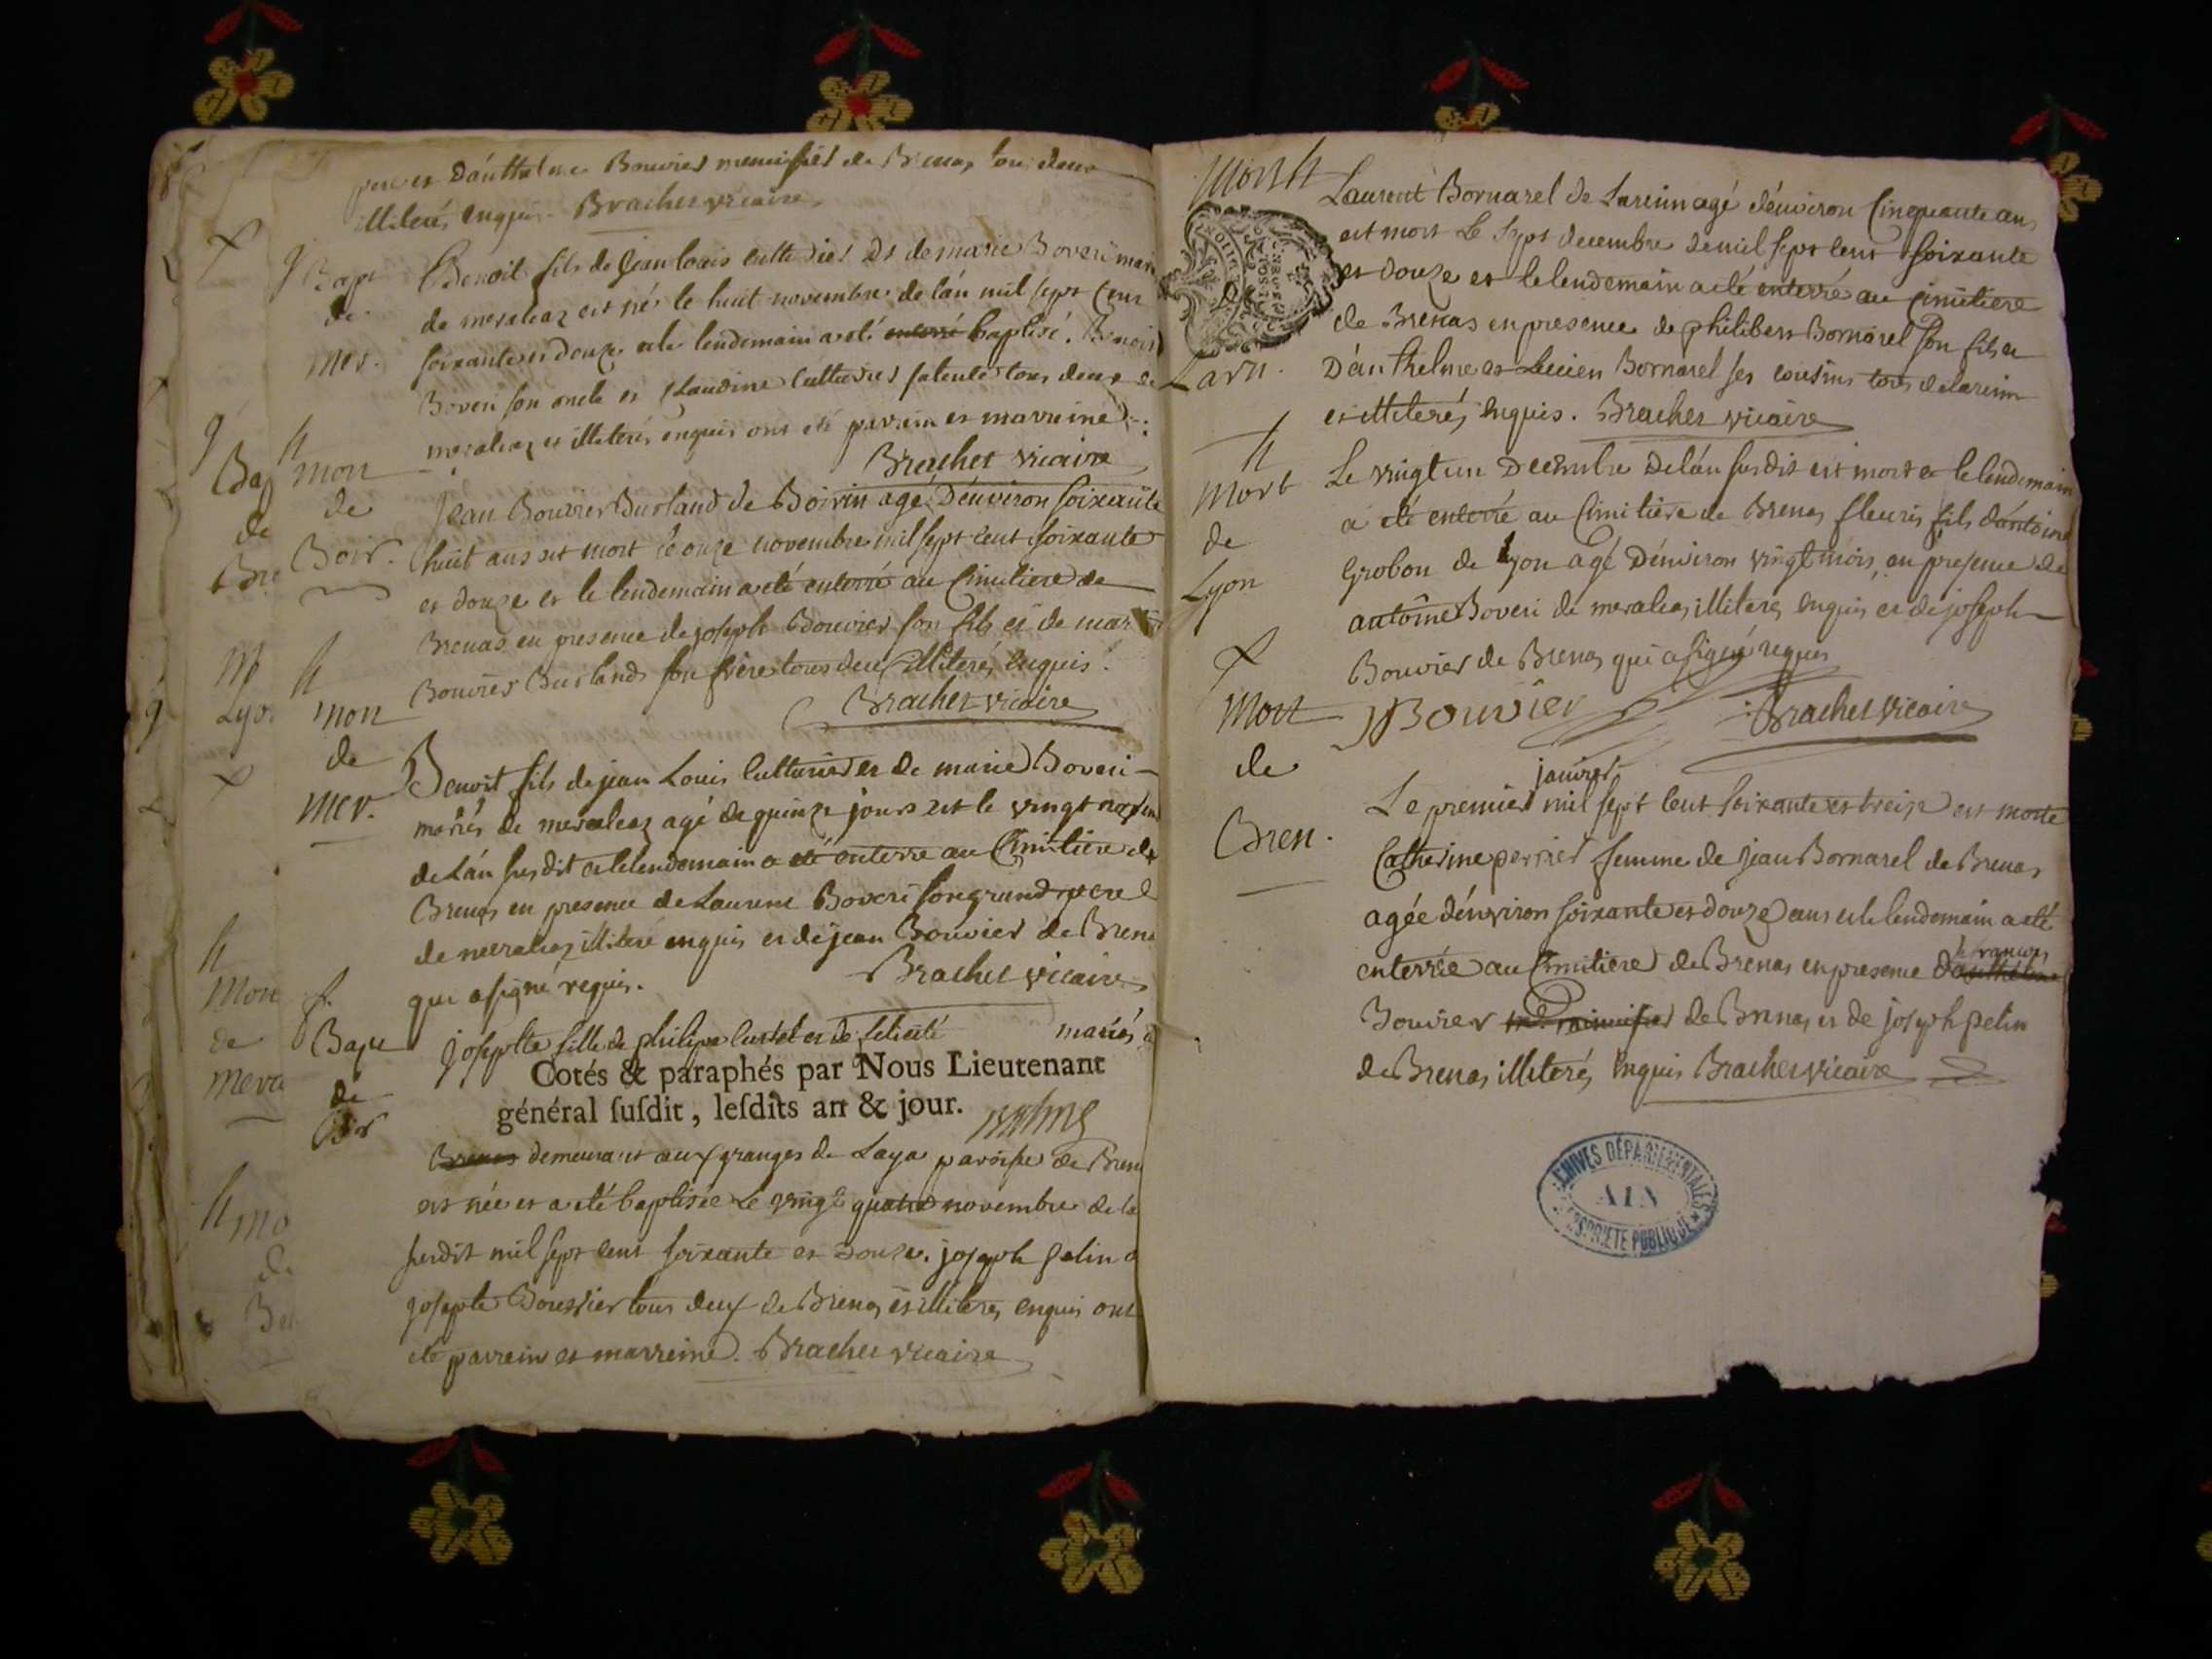 pere et D'anthelme Bouvier menuisier de Brenas tous deux
illiterés enquis. Brachet vicaire
Bapt
de
Mer.
Benoit fils de Jean Louis Culturier Et de marie Boveri mariés
de meraleaz est né le huit novembre de l'an mil sept cent
soixante et douze et le lendemain a eté enterré baptisé. Benoit
Boveri son oncle et Claudine Culturier sa tente tous deux de
meraleaz et illiterés enquis ont eté parrain et marreine
Brachet vicaire
mort
de
Boir.
Jean Bouvier Burland de Boirin agé D'environ soixante
huit ans est mort le onze novembre mil sept cent soixante
et douze et le lendemain a eté enterré au Cimitiere de
Brenas en presence de joseph Bouvier son fils et de
Bouvier Burland son frère tous deux illiterés enquis.
Brachet vicaire
mort
de
Mer.
Benoit fils de jean Louis Culturier et de marie Boveri
mariés de meraleaz agé de quinze jours est le vingt
de L'an susdit et le lendemain a eté enterre au Cimitiere de
Brenas en presence de Laurent Boveri son grand pere
de meraleaz illiteré enquis et de jean Bouvier de Brenas
qui a signé requis. Brachet vicaire
Bapt
de
Josephte fille de philipe et de felicité mariés
Cotés & paraphés par Nous Lieutenant
général susdit, lesdits an & jour.
Brenas demeurant aux granges de Laya paroisse de Bren
est née et a eté baptisée Le vingt quatre novembre de la
susdit mil sept cent soixante et douze. joseph pelin
josephte Bouvier tous deux de Brenas et illiterés enquis ont
eté parrein et marreine. Brachet vicaire
Mort
de
Larn.
Laurent Bornarel de Larinn agé d'environ Cinquante ans
est mort Le sept decembre de mil sept cent soixante
et douze et le lendemain a eté enterré au cimitiere
de Brenas en presence de philibert Bornarel son fils et
D'anthelme et Lucien Bornarel ses cousins tous de larinn
et illiterés enquis. Brachet vicaire
Mort
de
Lyon
Le vingt un Decembre de l'an susdit est mort et le lendemain
a eté enterré au Cimitière de Brenas fleuris fils d'antoine
Grobon de Lyon agé D'environ vingt mois en presence de
antoine Boveri de meraleas illiteré enquis et de joseph
Bouvier de Brenas qui a signé requis
JBouvier Brachet vicaire
Mort
de
Bren.
janvier
Le premier mil sept cent soixante et treize est morte
Catherine perrier femme de jean Bornarel de Brenas
agée d'environ soixante et douze ans et le lendemain a eté
françois
enterrée au Cimitiere de Brenas en presence d'anthelme
Bouvier menuisier de Brenas et de joseph pelin
de Brenas illiterés enquis Brachet vicaire
ARCHIVES DÉPARTEMENTALES
AIN
PROPRIÉTÉ PUBLIQUE